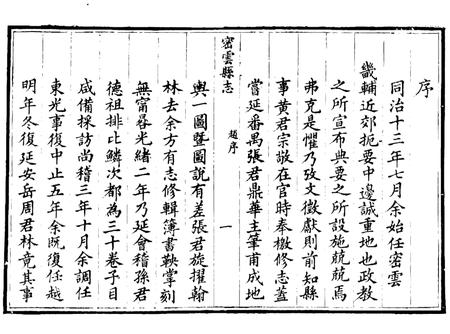 序
同治十三年七月余始任密雲
畿輔近郊扼要中邊誠重地也政教
之所宣布典要之所設施兢兢焉
弗克是懼乃攷文徵獻則前知縣
事黄君宗敬在官時奉檄修志蓋
嘗延番禺張君鼎華主筆甫成地
密雲縣志 趙序 一
輿一圖暨圖說有差張君旋擢翰
林去余方有志修輯簿書鞅掌刻
無甯晷光緒二年乃延會稽孫君
德祖排比鱗次都為三十卷子目
咸備採訪尚稽三年十月余調任
東光事復中止五年余既復任越
明年冬復延安岳周君林竟其事